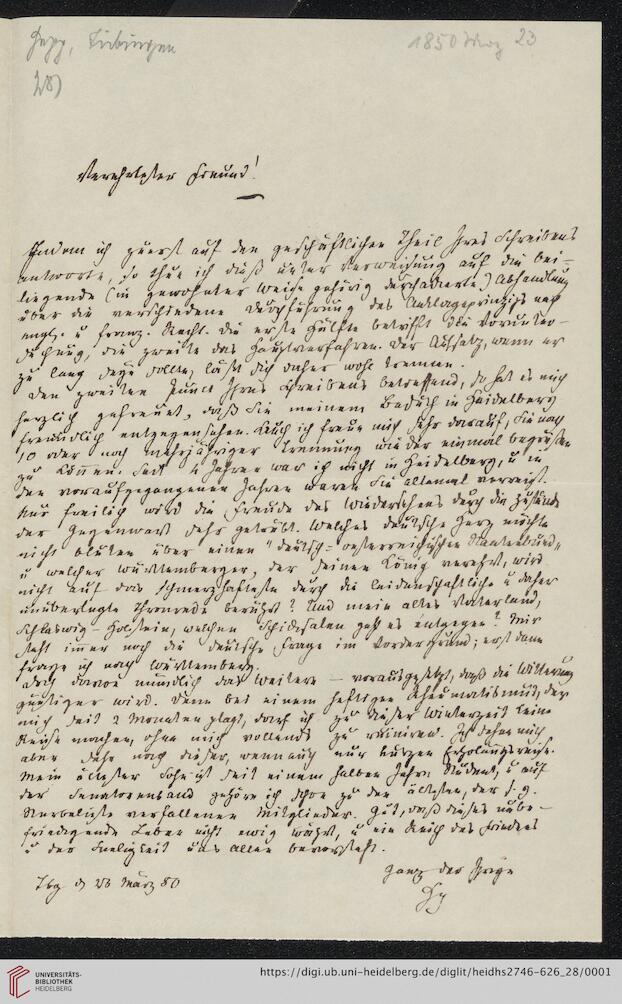 Hepp, Tübingen
1850 März 23
28)
Verehrtester Freund!
Indem ich zuerst auf den geschäftlichen Theil Ihres Schreibens
antworte, so thue ich dieß unter Verweisung auf die bei-
liegende (in gewohnter Weise gehörig durchcorrigirte) Abhandlung
über die verschiedene Durchführung des Anklageprinzips nach
engl. u franz. Recht. Die erste Hälfte betrifft die Vorunter-
suchung, die zweite das Hauptverfahren. Der Aufsatz, wenn er
zu lang seyn sollte, läßt sich daher wohl trennen.
Den zweiten Punct Ihres Schreibens betreffend, so hat es mich
herzlich gefreut, daß Sie meinem Besuch in Heidelberg
freundlich entgegensehen. Auch ich freue mich sehr darauf, Sie nach
10 oder noch mehrjähriger Trennung wieder einmal begrüßen
zu können. Seit Jahren war ich nicht in Heidelberg, u in
den vorausgegangenen Jahren waren Sie allemal verreist.
Nur freilich wird die Freude des Wiedersehens durch die Zustände
der Gegenwart sehr getrübt. Welches deutsche Herz möchte
nicht bluten über einen "deutsch-oesterreichischen Staatenbund",
u welcher Württemberger, der seinen König verehrt, wird
nicht auf das schmerzhafteste durch die leidenschaftliche u daher
unüberlegte Thronrede berührt? Und mein altes Vaterland,
Schleswig-Holstein, welchen Schicksalen geht es entgegen? Mir
steht immer noch die deutsche Frage im Vordergrund; erst dann
frage ich nach Württemberg.
Doch davon mündlich das Weitere – vorausgesetzt, daß die Witterung
günstiger wird. Denn bei einem heftigen Rheumatismus, der
mich seit 2 Monaten plagt, darf ich zu dieser Winterzeit keine
Reise machen, ohne mich vollends zu ruiniren. Ich sehne mich
aber sehr nach dieser, wenn auch nur kurzen Erholungsreise.
Mein ältester Sohn ist seit einem halben Jahre Student, u auf
der Senatorenbank gehöre ich schon zu den ältesten, der s. g.
Sterbeliste verfallenen Mitglieder. Gut, daß dieses unbe-
friedigende Leben nicht ewig währt, u ein Reich des Friedens
u der Seeligkeit uns Allen bevorsteht.
Ganz der Ihrige
Tbg d 23 März 50
Hp
UNIVERSITÄTS-
BIBLIOTHEK
HEIDELBERG
https://digi.ub.uni-heidelberg.de/diglit/heidhs2746-626_28/0001